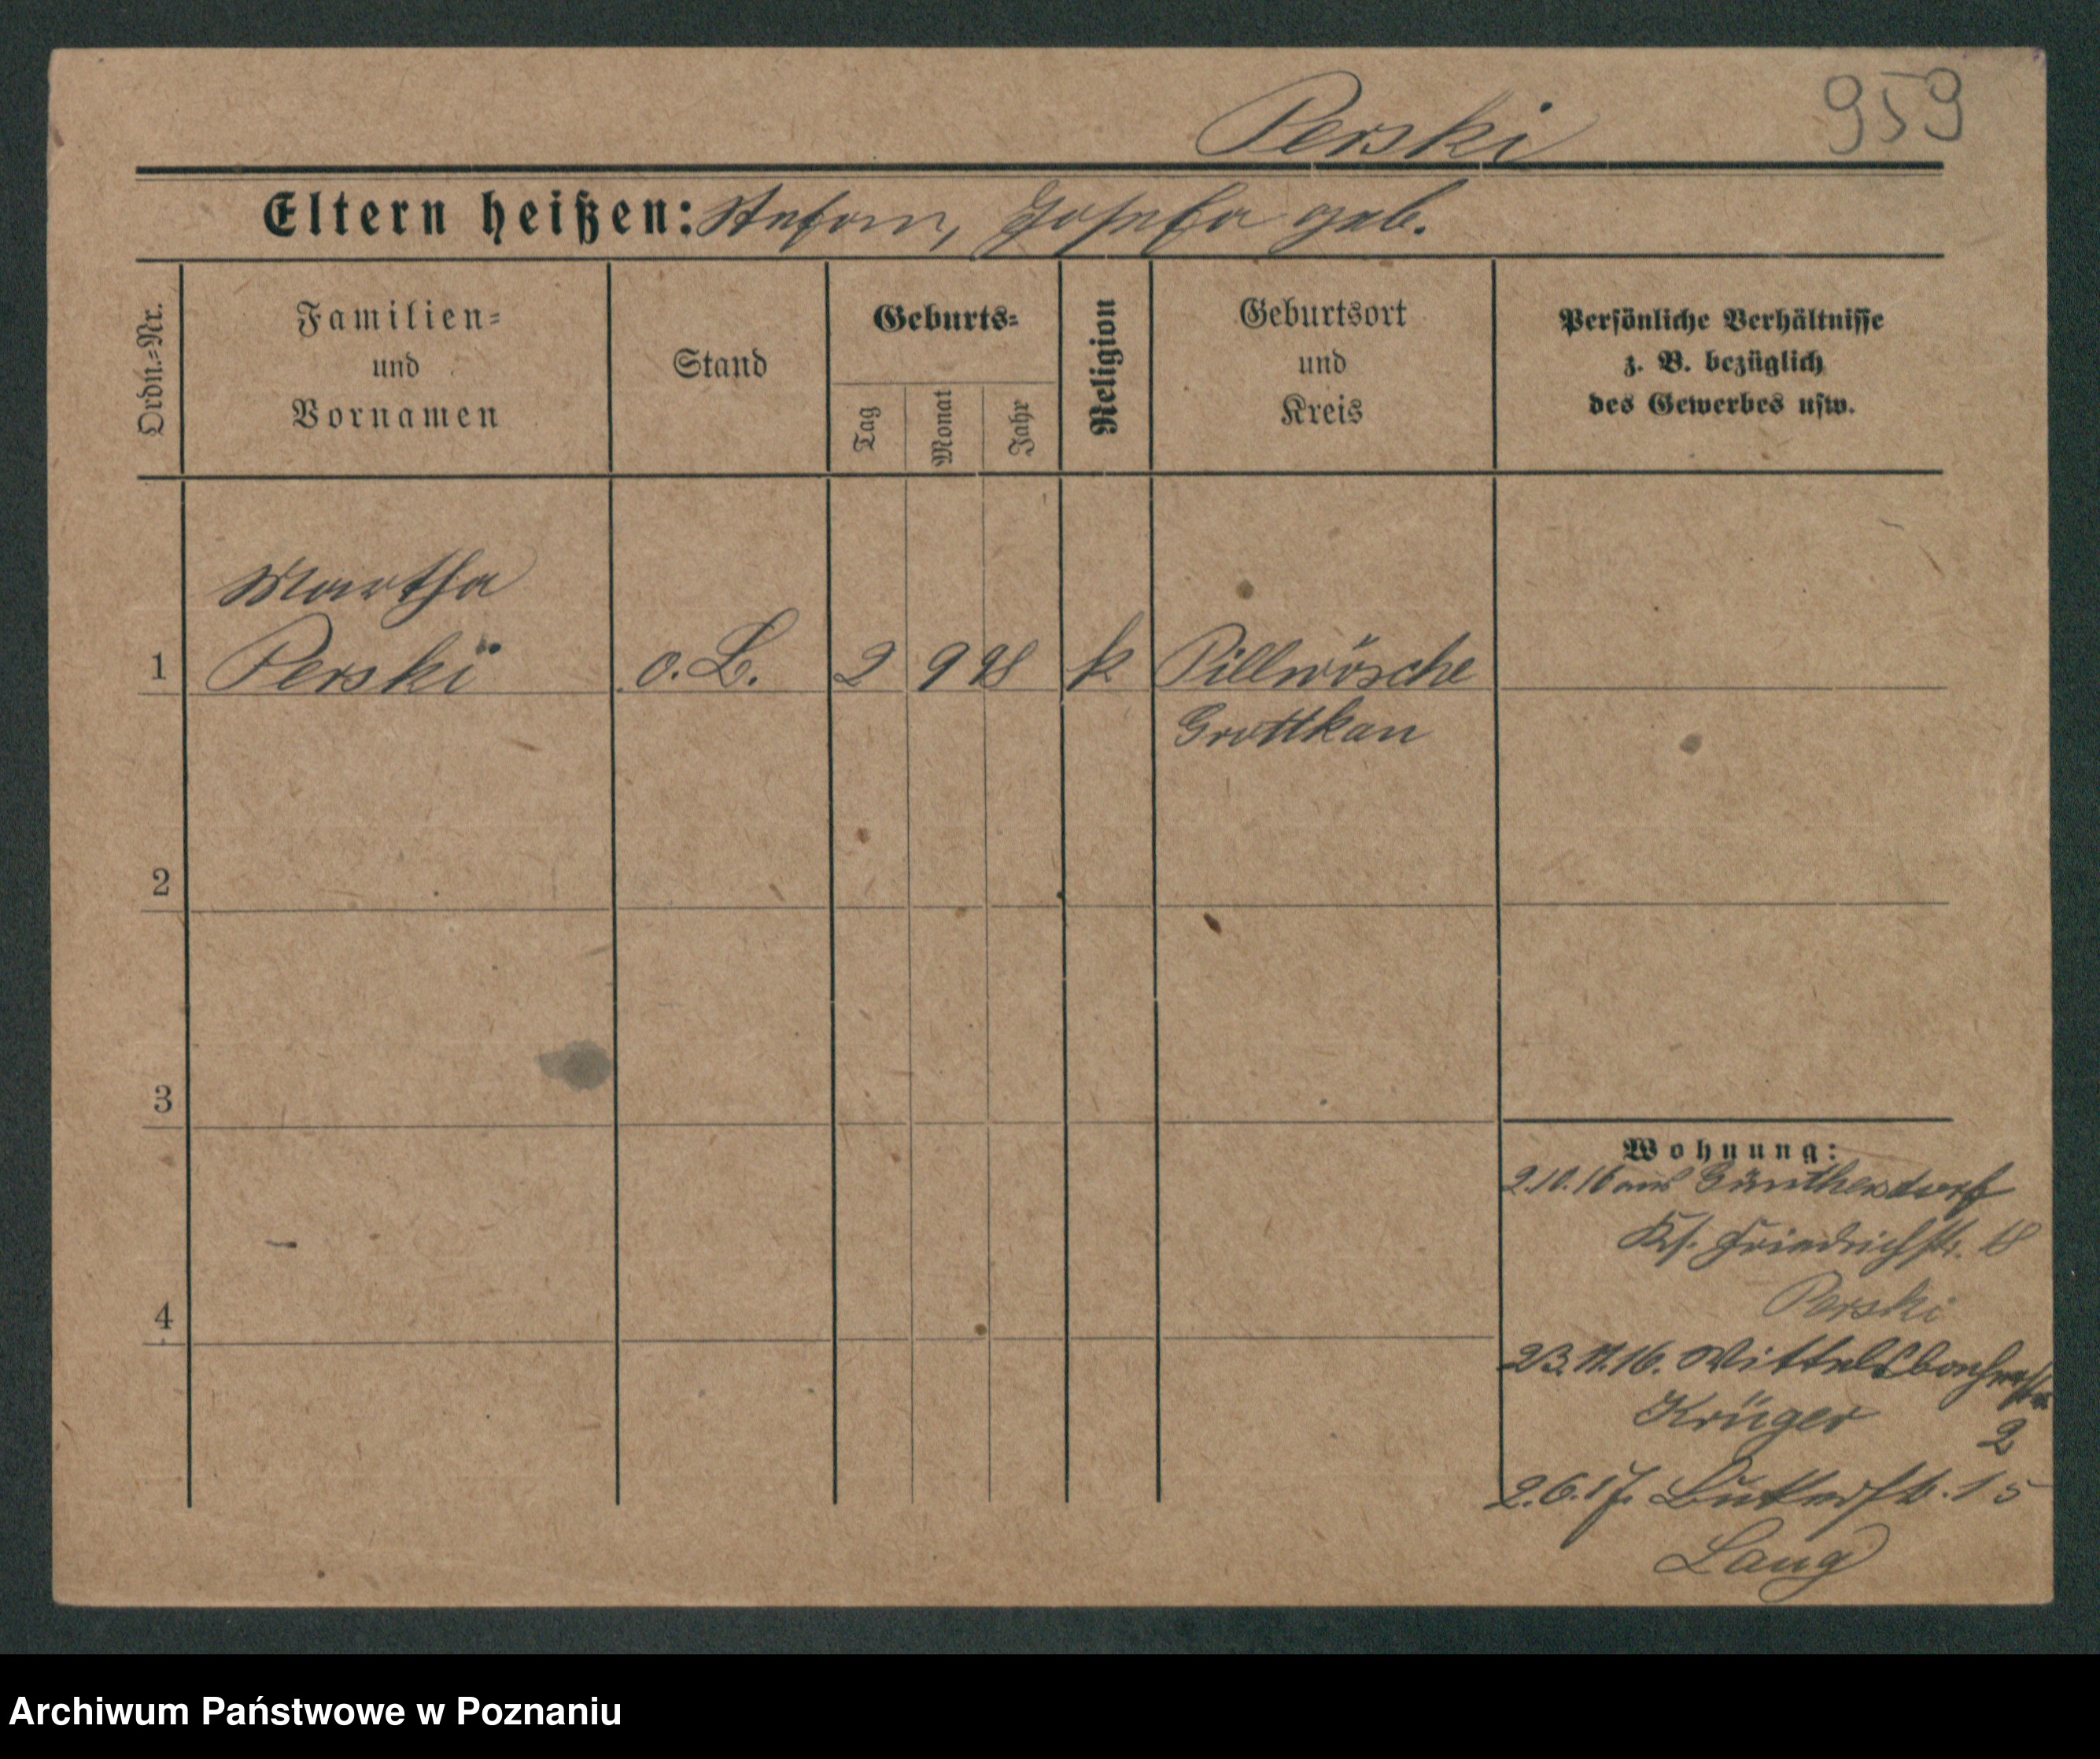 959
Perski
Eltern heißen: Stefan, Josefa geb.
Ordn.-Nr.
Familien-
und
Vornamen
Stand
Geburts-
Tag
Monat
Jahr
Religion
Geburtsort
und
Kreis
Persönliche Verhältnisse
z. B. bezüglich
des Gewerbes usw.
Martha
1 Perski o. B. 2 9 98 k Pillwösche
Grottkau
2
3
4
Wohnung:
2.10.16 aus Günthersdorf
Friedrichstr. 18
Perski
23.11.16. Wittelsbacherstr.
Krüger 2
2.6.17. 15
Lang
Archiwum Państwowe w Poznaniu